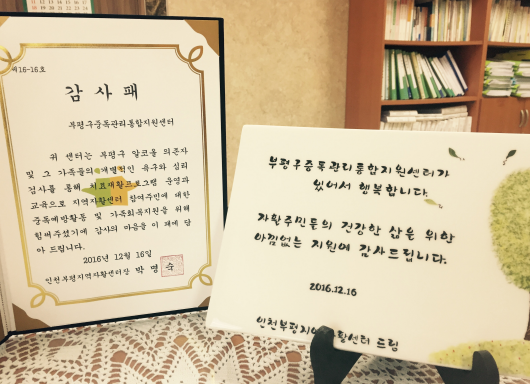 제16-16호
감 사 패
부평구중독관리통합지원센터
귀 센터는 부평구 알코올 의존자
및 그 가족들의 개별적인 욕구와 심리
검사를 통해 치료재활프로그램 운영과
교육으로 지역자활센터 참여주민에 대한
중독예방활동 및 가족회복지원을 위해
힘써주셨기에 감사의 마음을 이 패에 담
아 드립니다.
2016년 12월 16일
인천부평지역자활센터장 박 명 숙
부평구중독관리통합지원센터가
있어서 행복합니다.
자활주민들의 건강한 삶을 위한
아낌없는 지원에 감사드립니다.
2016.12.16
인천부평지역자활센터 드림